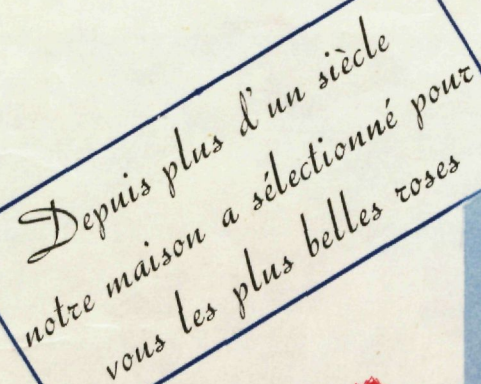 Depuis plus d'un siècle
notre maison a sélectionné pour
vous les plus belles roses